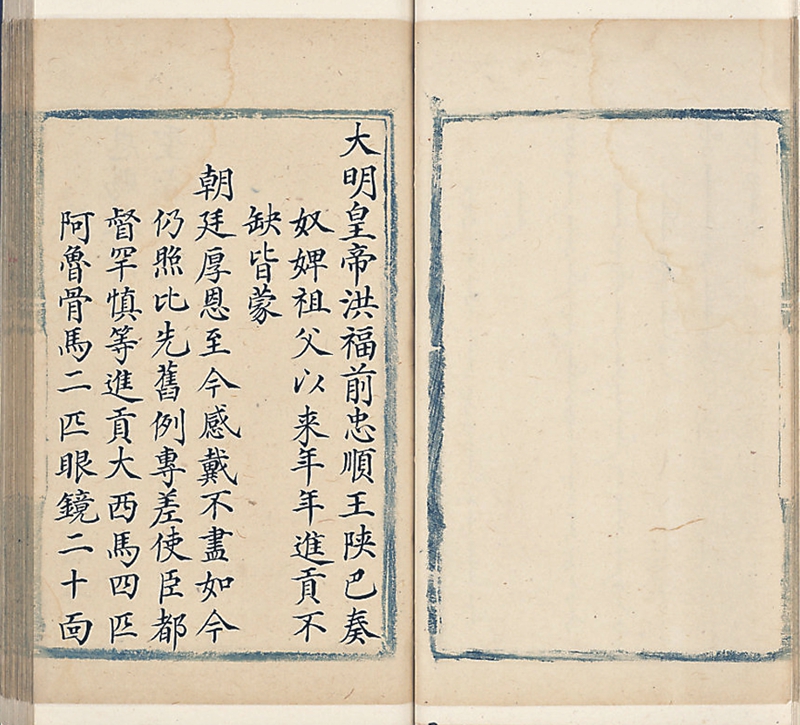 大明皇帝洪福前忠順王陜巴奏
奴婢祖父以来年年進貢不
缺皆蒙
朝廷厚恩至今感戴不盡如今
仍照比先舊例專差使臣都
督罕慎等進貢大西馬四匹
阿魯骨馬二匹眼鏡二十面